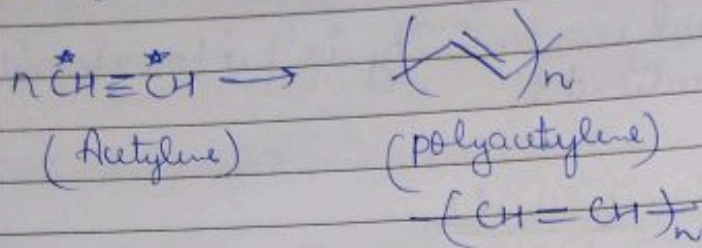 n CH≡CH → ( )n
(Acetylene) (polyacetylene)
-(CH=CH)-n